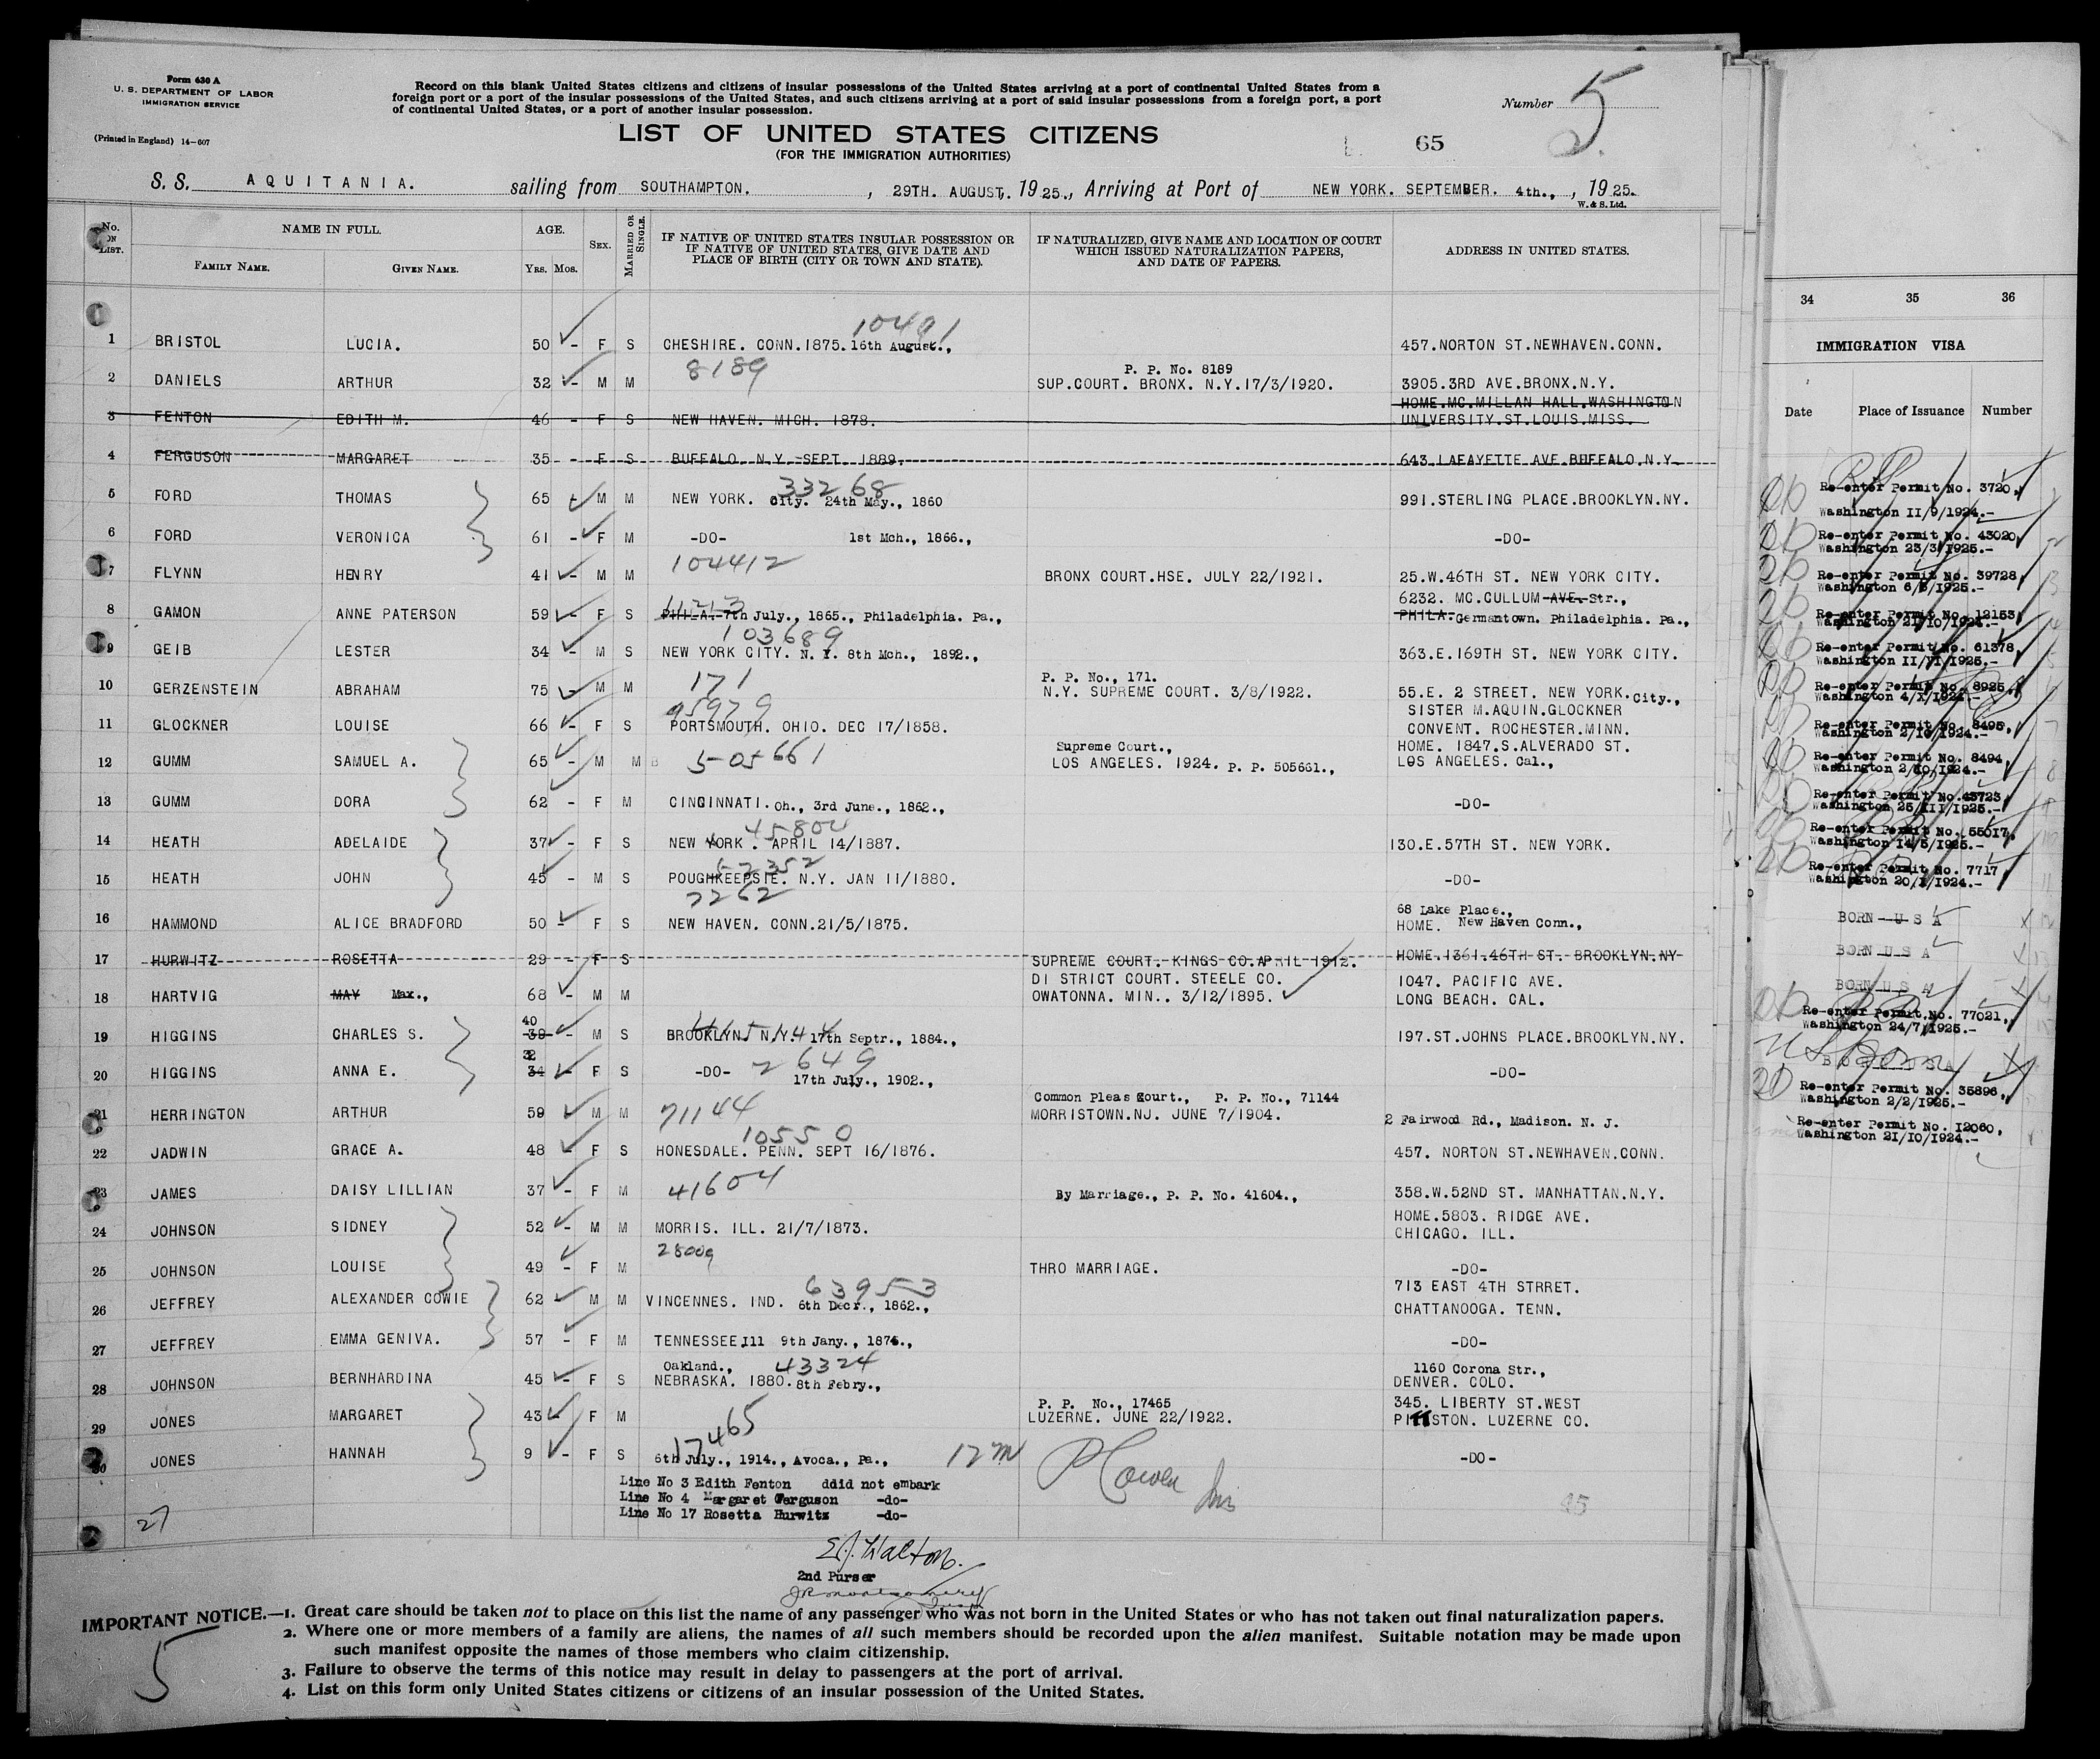 Form 630 A
U. S. DEPARTMENT OF LABOR
IMMIGRATION SERVICE
(Printed in England) 14-607
Record on this blank United States citizens and citizens of insular possessions of the United States arriving at a port of continental United States from a
foreign port or a port of the insular possessions of the United States, and such citizens arriving at a port of said insular possessions from a foreign port, a port
of continental United States, or a port of another insular possession.
Number 5
LIST OF UNITED STATES CITIZENS
(FOR THE IMMIGRATION AUTHORITIES)
65
S. S. AQUITANIA. sailing from SOUTHAMPTON. , 29TH. AUGUST, 1925., Arriving at Port of NEW YORK. SEPTEMBER. 4th., , 1925.
W. & S. Ltd.
No. ON LIST. NAME IN FULL. AGE. SEX. MARRIED OR SINGLE. IF NATIVE OF UNITED STATES INSULAR POSSESSION OR IF NATIVE OF UNITED STATES, GIVE DATE AND PLACE OF BIRTH (CITY OR TOWN AND STATE). IF NATURALIZED, GIVE NAME AND LOCATION OF COURT WHICH ISSUED NATURALIZATION PAPERS, AND DATE OF PAPERS. ADDRESS IN UNITED STATES.
FAMILY NAME. GIVEN NAME. YRS. MOS.
10491
1 BRISTOL LUCIA. 50 - F S CHESHIRE. CONN.1875.16th August., 457.NORTON ST.NEWHAVEN.CONN.
8189 P. P. No. 8189
2 DANIELS ARTHUR 32 - M M SUP.COURT. BRONX. N.Y.17/3/1920. 3905.3RD AVE.BRONX.N.Y.
HOME.MC.MILLAN HALL.WASHINGTON
3 FENTON EDITH M. 46 - F S NEW HAVEN. MICH. 1878. UNIVERSITY.ST.LOUIS.MISS.
4 FERGUSON MARGARET 35 - F S BUFFALO. N.Y. SEPT. 1889. 643.LAFAYETTE AVE.BUFFALO.N.Y.
33268
5 FORD THOMAS 65 - M M NEW YORK. City. 24th May., 1860 991.STERLING PLACE.BROOKLYN.NY.
6 FORD VERONICA 61 - F M -DO- 1st Mch., 1866., -DO-
104412
7 FLYNN HENRY 41 - M M BRONX COURT.HSE. JULY 22/1921. 25.W.46TH ST. NEW YORK CITY.
11213 6232. MC.CULLUM AVE. Str.,
8 GAMON ANNE PATERSON 59 - F S PHILA. 7th July., 1865., Philadelphia. Pa., PHILA. Germantown. Philadelphia. Pa.,
103689
9 GEIB LESTER 34 - M S NEW YORK CITY. N. Y. 8th Mch., 1892., 363.E.169TH ST. NEW YORK CITY.
171 P. P. No., 171.
10 GERZENSTEIN ABRAHAM 75 - M M N.Y. SUPREME COURT. 3/8/1922. 55.E. 2 STREET. NEW YORK. City.,
95979 SISTER M.AQUIN.GLOCKNER
11 GLOCKNER LOUISE 66 - F S PORTSMOUTH. OHIO. DEC 17/1858. CONVENT. ROCHESTER.MINN.
505661 Supreme Court., HOME. 1847.S.ALVERADO ST.
12 GUMM SAMUEL A. 65 - M M LOS ANGELES. 1924. P. P. 505661., LOS ANGELES. Cal.,
13 GUMM DORA 62 - F M CINCINNATI. Oh., 3rd June., 1862., -DO-
45800
14 HEATH ADELAIDE 37 - F S NEW YORK . APRIL 14/1887. 130.E.57TH ST. NEW YORK.
62352
15 HEATH JOHN 45 - M S POUGHKEEPSIE. N.Y. JAN 11/1880. -DO-
7262 68 Lake Place.,
16 HAMMOND ALICE BRADFORD 50 - F S NEW HAVEN. CONN.21/5/1875. HOME. New Haven Conn.,
17 HURWITZ ROSETTA 29 - F S SUPREME COURT. KINGS CO.APRIL 1912. HOME.1361.46TH ST. BROOKLYN.NY
DISTRICT COURT. STEELE CO. 1047. PACIFIC AVE.
18 HARTVIG MAY Max., 68 - M M OWATONNA. MIN.. 3/12/1895. LONG BEACH. CAL.
40
19 HIGGINS CHARLES S. 39 - M S BROOKLYN. N.Y. 17th Septr., 1884., 197.ST.JOHNS PLACE.BROOKLYN.NY.
32 2649
20 HIGGINS ANNA E. 34 - F S -DO- 17th July., 1902., -DO-
Common Pleas Court., P. P. No., 71144
21 HERRINGTON ARTHUR 59 M M 71144 MORRISTOWN.NJ. JUNE 7/1904. 2 Fairwood Rd., Madison. N. J.
10550
22 JADWIN GRACE A. 48 - F S HONESDALE. PENN. SEPT 16/1876. 457. NORTON ST.NEWHAVEN.CONN.
23 JAMES DAISY LILLIAN 37 - F M 41604 By Marriage., P. P. No. 41604., 358.W.52ND ST. MANHATTAN.N.Y.
HOME.5803. RIDGE AVE.
24 JOHNSON SIDNEY 52 - M M MORRIS. ILL. 21/7/1873. CHICAGO. ILL.
28009
25 JOHNSON LOUISE 49 - F M THRO MARRIAGE. -DO-
63953 713 EAST 4TH STRRET.
26 JEFFREY ALEXANDER COWIE 62 M M VINCENNES. IND. 6th Decr., 1862., CHATTANOOGA. TENN.
27 JEFFREY EMMA GENIVA. 57 - F M TENNESSEE Ill 9th Jany., -DO-
Oakland., 43324 1160 Corona Str.,
28 JOHNSON BERNHARDINA 45 - F S NEBRASKA. 1880. 8th Febry., DENVER. COLO.
P. P. No., 17465 345. LIBERTY ST.WEST
29 JONES MARGARET 43 - F M 17465 LUZERNE. JUNE 22/1922. PITTSTON. LUZERNE CO.
30 JONES HANNAH 9 - F S 6th July., 1914., Avoca., Pa., 12 M -DO-
Line No 3 Edith Fenton ddid not embark
Line No 4 Margaret Ferguson -do-
Line No 17 Rosetta Hurwitz -do-
27
45
E.J. Walton.
2nd Purser
IMPORTANT NOTICE.—1. Great care should be taken not to place on this list the name of any passenger who was not born in the United States or who has not taken out final naturalization papers.
2. Where one or more members of a family are aliens, the names of all such members should be recorded upon the alien manifest. Suitable notation may be made upon
such manifest opposite the names of those members who claim citizenship.
3. Failure to observe the terms of this notice may result in delay to passengers at the port of arrival.
4. List on this form only United States citizens or citizens of an insular possession of the United States.
5
34 35 36
IMMIGRATION VISA
Date Place of Issuance Number
Re-enter Permit No. 3720,
Washington II/9/1924.-
Re-enter Permit No. 43020,
Washington 23/3/1925.-
Re-enter Permit No. 39728,
Washington 6/3/1925.-
Re-enter Permit No. 12153,
Washington 21/10/1924.-
Re-enter Permit No. 61378,
Washington II/VI/1925.-
Re-enter Permit No. 8925,
Washington 4/X/1924.-
Re-enter Permit No. 8495,
Washington 2/10/1924.-
Re-enter Permit No. 8494,
Washington 2/10/1924.-
Re-enter Permit No. 43723,
Washington 25/III/1925.-
Re-enter Permit No. 55017,
Washington 14/5/1925.-
Re-enter Permit No. 7717,
Washington 20/ /1924.-
BORN U S A
BORN U S A
BORN U S A
Re-enter Permit No. 77021,
Washington 24/7/1925.-
US Born
Re-enter Permit No. 35896,
Washington 2/2/1925.-
Re-enter Permit No. I2060,
Washington 21/IO/1924.-